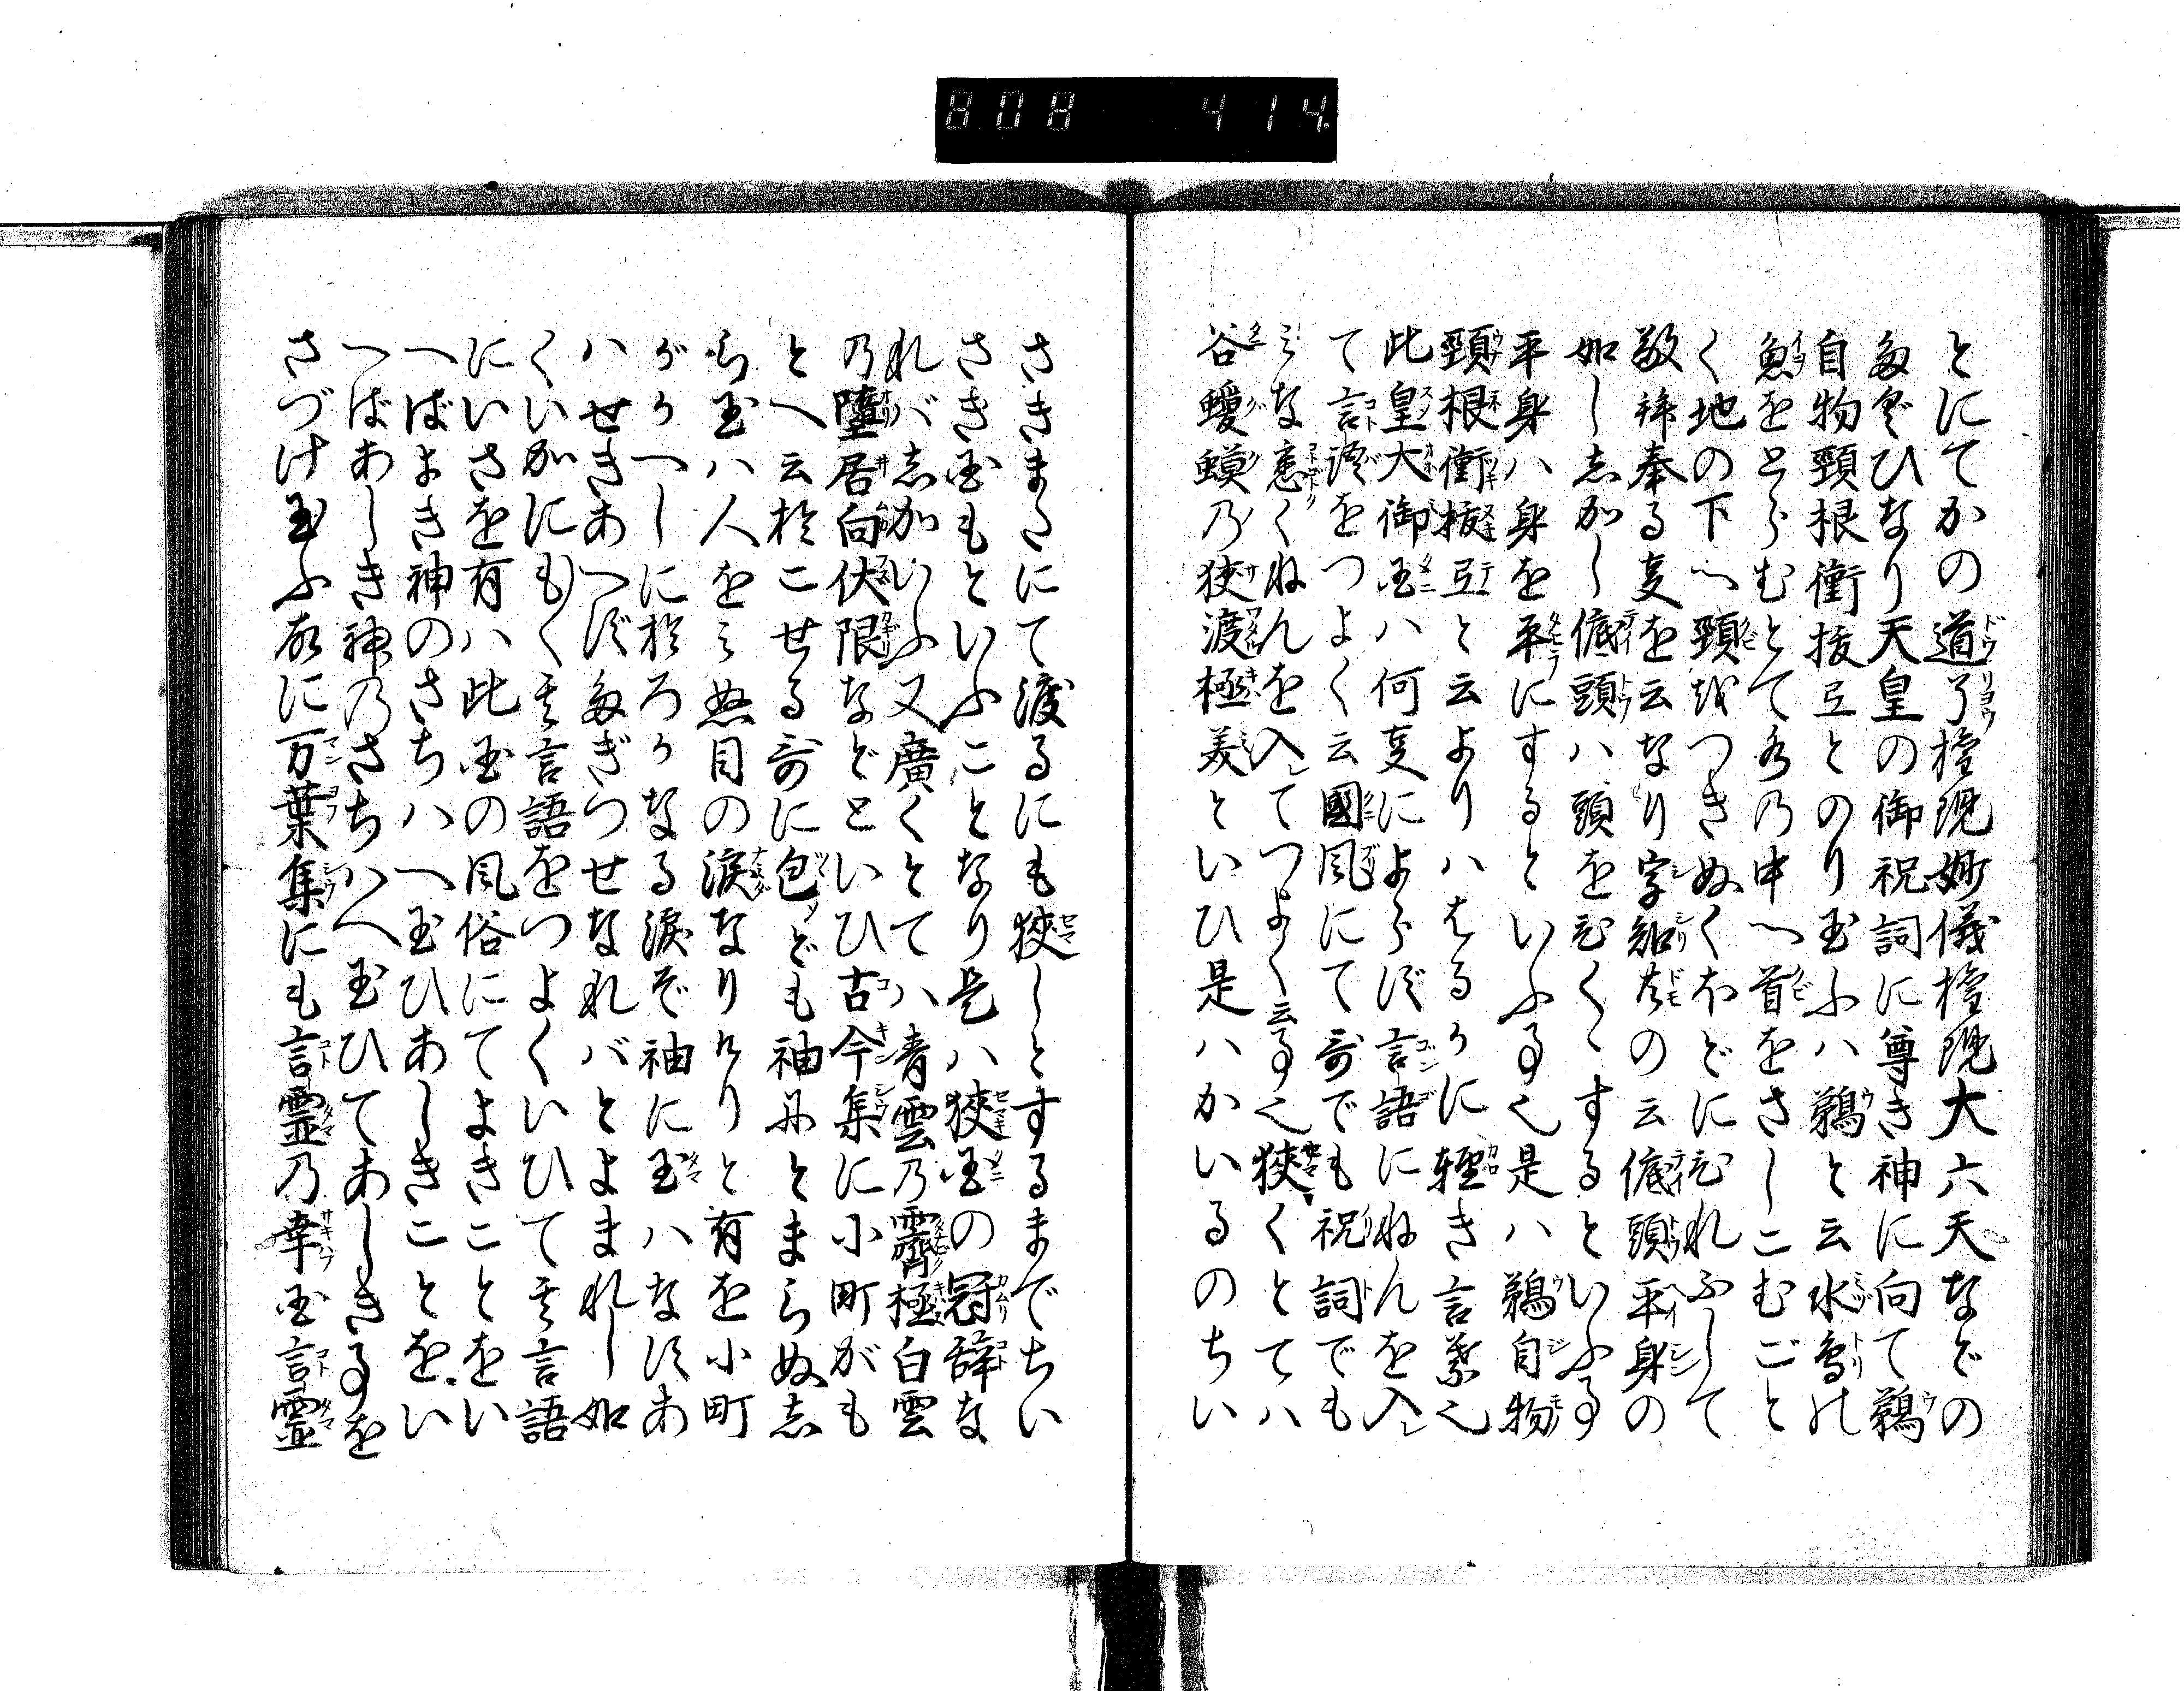 808 414
とにてかの道了権現妙儀権現大六天などの
たぐひなり天皇の御祝詞に尊き神に向て鵜
自物頸根衝抜豆とのり玉ふハ鵜と云水鳥の
魚をとらむとて水の中へ首をさしこむごと
く地の下へ頸をつきぬくほどにむれふして
敬拝奉る事を云なり字知共の云低頭平身の
如ししかし低頭ハ頭をひくくするといふ事
平身ハ身を平にするといふ事也是ハ鵜自物
頸根衝抜豆と云よりハはるかに軽き言葉也
此皇大御国ハ何事によらず言語にねんを入
て言語をつよく云國風にて哥でも祝詞でも
みな悉くねんを入てつよく云事也狭くとてハ
谷蟆乃狭渡極美といひ是ハかいるのちい
さきまたにて渡るにも狭しとするまでちい
さき国もといふことなり是ハ狭国の冠辞な
れバしかいふ又廣くとてハ青雲乃靄極白雲
乃墮居向伏限などといひ古今集に小町がも
とへ云於こせる哥に包めども袖にとまらぬし
ら玉ハ人をみぬ目の涙なりけりと有を小町
がかへしに於ろかなる涙ぞ袖に玉ハなすあ
ハせきあへずたぎつせなれバとよまれし如
くいかにもく其言語をつよくいひて其言語
にいさを有ハ此国の風俗にてよきことをい
へばよき神のさちハへ玉ひあしきことをい
へばあしき神乃さちハへ玉ひてあしき事を
さづけ玉ふ故に万葉集にも言霊乃幸国言霊